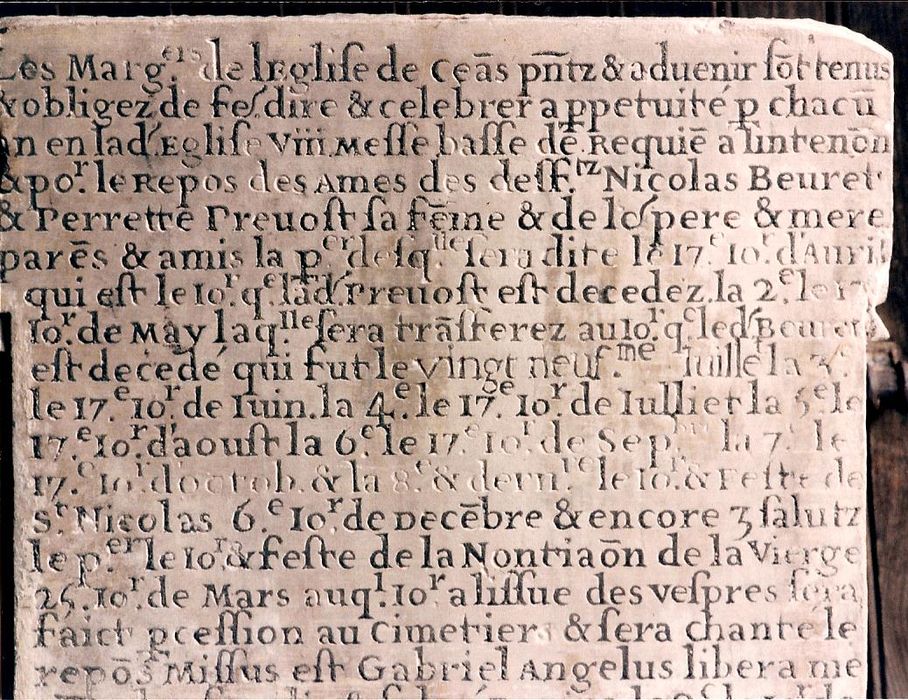 Les Marg.ers de lEgliſe de Ceās pn̄tz & aduenir ſōt tenus
& obligez de feſ.dire & celebrer a ppetuité p chacū
an en lad.Egliſe Viii.Meſſe baſſe de Requiē a lintenōn
& po.r le Repos des Ames des deff.tz Nicolas Beuret
& Perrette Preuoſt ſa fēme & de loſ pere & mere
parēs & amis la p.er deſq.lle ſera dite le 17.e 10.r d'Auril
qui eſt le 10.r q.e lad.Preuoſt eſt decedez.la 2.e le 17
10.r de May laq.lle ſera trāſferez au 10.r q.e led.Beuret
eſt decedé qui fut le vingt neuf.me Iuillet la 3.e
le 17.e 10.r de Iuin.la 4.e le 17.e 10.r de Iullier la 5.e le
17.e 10.r d'aouſt la 6.e le 17.e 10.r de Sep.bre la 7.e le
17.e 10.r d'octob.& la 8.e & dern.re le 10.r & Feſte de
S.t Nicolas 6.e 10.r de Decēbre & encore 3 ſalutz
le p.er le 10.r & feſte de la Nontiaōn de la Vierge
25.10.r de Mars auq.l 10.r a liſſue des veſpres ſera
faict pceſſion au Cimetier & ſera chante le
repōs Miſſus eſt Gabriel Angelus libera me